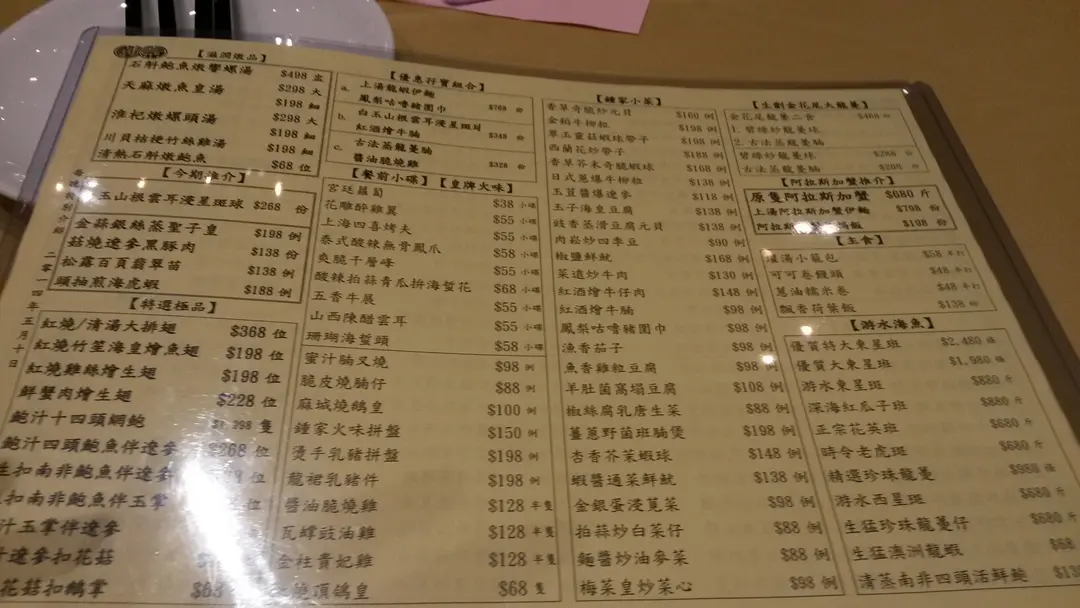 【滋潤燉品】
石斛鮑魚燉響螺湯 $498 盅
天麻燉魚皇湯 $298 大
$198 細
淮杞燉螺頭湯 $298 大
$198 細
川貝桔梗竹絲雞湯 $198 細
清熱石斛燉鮑魚 $68 位
【今期推介】
玉山根雲耳浸星斑球 $268 份
金蒜銀絲蒸聖子皇 $198 例
菇燒遼參黑豚肉 $138 份
松露百頁翡翠苗 $138 例
頭抽煎海虎蝦 $188 例
【特選極品】
紅燒/清湯大排翅 $368 位
紅燒竹笙海皇燴魚翅 $198 位
紅燒雞絲燴生翅 $198 位
鮮蟹肉燴生翅 $228 位
鮑汁十四頭網鮑 隻
鮑汁四頭鮑魚伴遼參 $268 位
生扣南非鮑魚伴遼參 位
扣南非鮑魚伴玉掌 位
汁玉掌伴遼參
遼參扣花菇
花菇扣鵝掌
二零一四年五月十日
【優惠孖寶組合】
a. 上湯龍蝦伊麵
鳳梨咕嚕豬圍巾 $768 份
b. 白玉山根雲耳浸星斑球
紅酒燴牛腩 $348 份
c. 古法蒸龍躉腩
醬油脆燒雞 $328 份
【餐前小碟】【皇牌火味】
宮廷蘿蔔 $38 小碟
花雕醉雞翼 $55 小碟
上海四喜烤夫 $55 小碟
泰式酸辣無骨鳳爪 $58 小碟
爽脆千層峰 $55 小碟
酸辣拍蒜青瓜拼海蜇花 $68 小碟
五香牛展 $55 小碟
山西陳醋雲耳 $55 小碟
珊瑚海蜇頭 $58 小碟
蜜汁腩叉燒 $98 例
脆皮燒腩仔 $88 例
麻城燒鴿皇 $100 例
鍾家火味拼盤 $150 例
燙手乳豬拼盤 $198 例
龍裙乳豬件 $198 例
醬油脆燒雞 $128 半隻
瓦罉豉油雞 $128 半隻
金柱貴妃雞 $128 半隻
燒頂鴿皇 $68 隻
【鍾家小菜】
香草奇脆炒元貝 $160 例
金粕牛柳粒 $198 例
翠玉靈菇蝦球帶子 $198 例
西蘭花炒帶子 $188 例
香草芥末奇脆蝦球 $168 例
日式蔥爆牛柳粒 $138 例
玉荳醬爆遼參 $118 例
玉子海皇豆腐 $138 例
豉香蒸滑豆腐元貝 $138 例
肉崧炒四季豆 $90 例
椒鹽鮮魷 $168 例
菜遠炒牛肉 $130 例
紅酒燴牛仔肉 $148 例
紅酒燴牛腩 $98 例
鳳梨咕嚕豬圍巾 $98 例
漁香茄子 $98 例
魚香雞粒豆腐 $98 例
羊肚菌窩塌豆腐 $108 例
椒絲腐乳唐生菜 $88 例
薑蔥野菌班腩煲 $198 例
杏香芥菜蝦球 $148 例
蝦醬通菜鮮魷 $138 例
金銀蛋浸莧菜 $98 例
拍蒜炒白菜仔 $88 例
麵醬炒油麥菜 $88 例
梅菜皇炒菜心 $98 例
【生劏金花尾大龍躉】
金花尾龍躉二食 $468
1. 碧綠炒龍躉球
2. 古法蒸龍躉腩
碧綠炒龍躉球 $288 份
古法蒸龍躉腩 份
【阿拉斯加蟹推介】
原隻阿拉斯加蟹 $680 斤
上湯阿拉斯加蟹伊麵 $798 份
阿拉斯 湯飯 $198 份
【主食】
灌湯小籠包 $58 半打
可可卷饅頭 $48 半打
蔥油糯米卷 $48 半打
飄香荷葉飯 $138 份
【游水海魚】
優質特大東星班 $2,480 條
優質大東星班 $1,980 條
游水東星班 $880 斤
深海紅瓜子班 $880 斤
正宗花英班 $680 斤
時令老虎斑 $680 斤
精選珍珠龍躉 $988 條
游水西星斑 $680 斤
生猛珍珠龍躉仔 $680 斤
生猛澳洲龍蝦 $68
清蒸南非四頭活鮮鮑